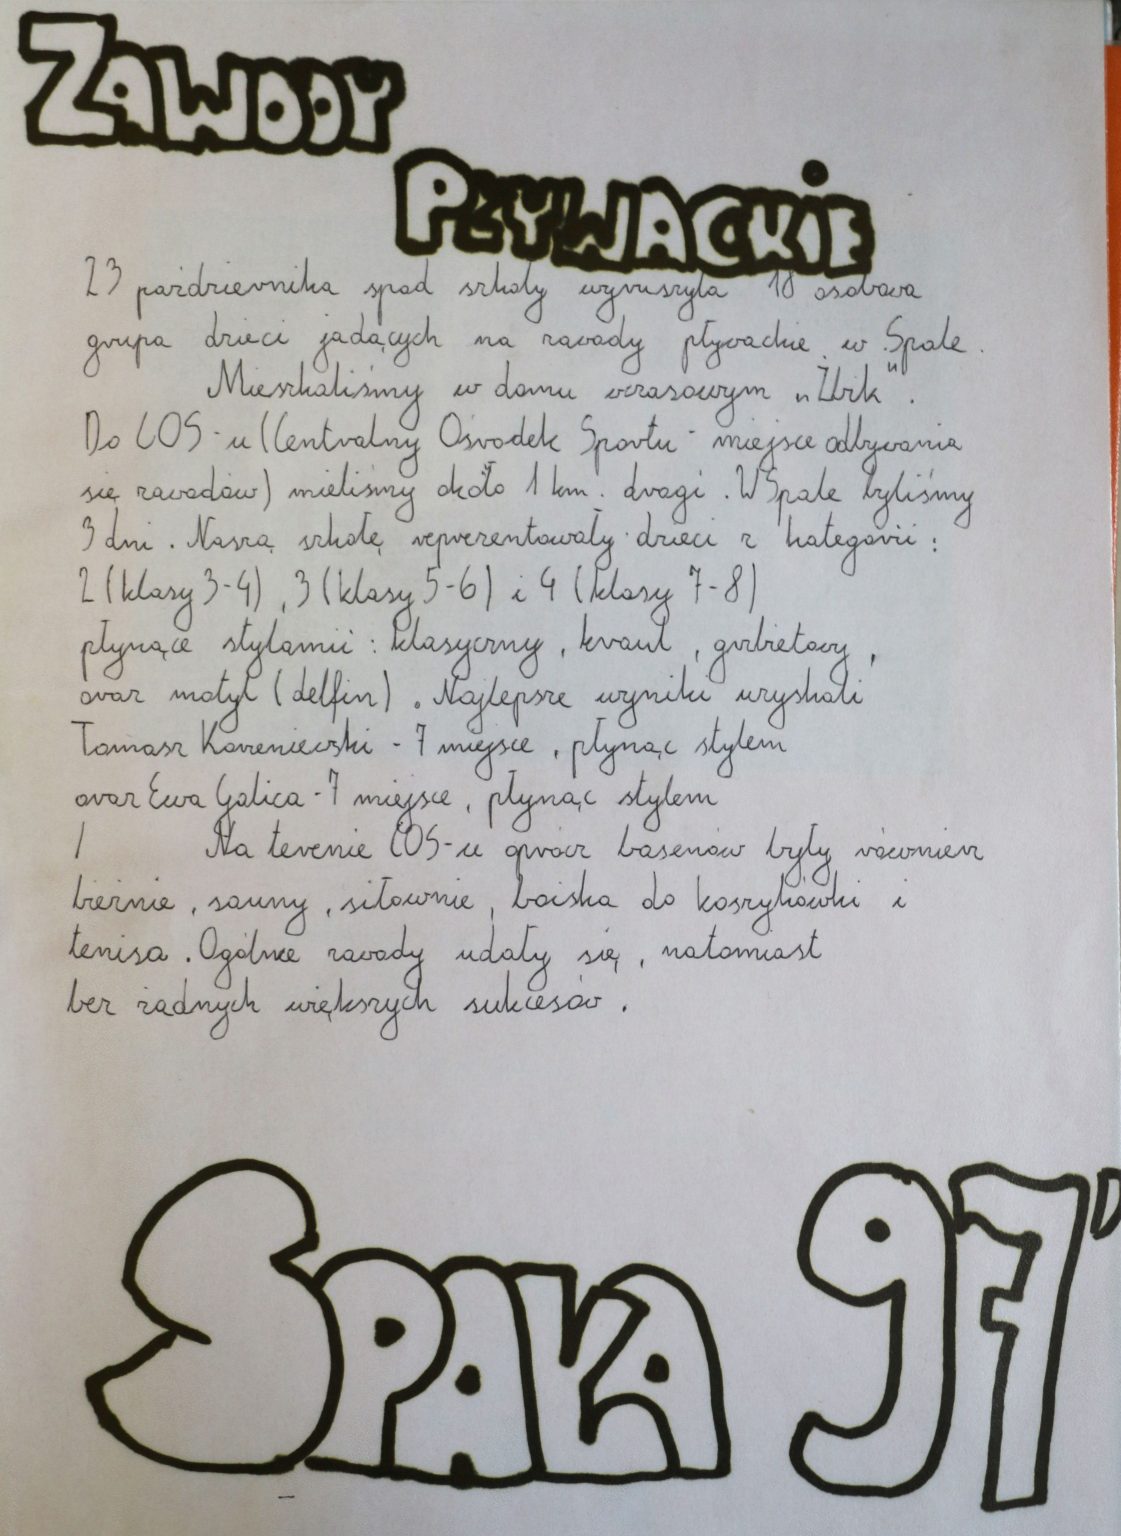 ZAWODY
PŁYWACKIE
23 października spod szkoły wyruszyła 18 osobowa
grupa dzieci jadących na zawody pływackie w Spale.
Mieszkaliśmy w domu wczasowym „Żbik".
Do COS-u (Centralny Ośrodek Sportu - miejsce odbywania
się zawodów) mieliśmy około 1 km. drogi. W Spale byliśmy
3 dni. Naszą szkołę reprezentowały dzieci z kategorii:
2 (klasy 3-4), 3 (klasy 5-6) i 4 (klasy 7-8)
płynące stylami: klasyczny, kraul, grzbietowy,
oraz motyl (delfin). Najlepsze wyniki uzyskali
Tomasz Koreniewski - 7 miejsce, płynąc stylem
oraz Ewa Galica - 7 miejsce, płynąc stylem
/ Na terenie COS-u oprócz basenów były również
bieżnie, sauny, siłownie, boiska do koszykówki i
tenisa. Ogólnie zawody udały się, natomiast
bez żadnych większych sukcesów.
SPAŁA 97'